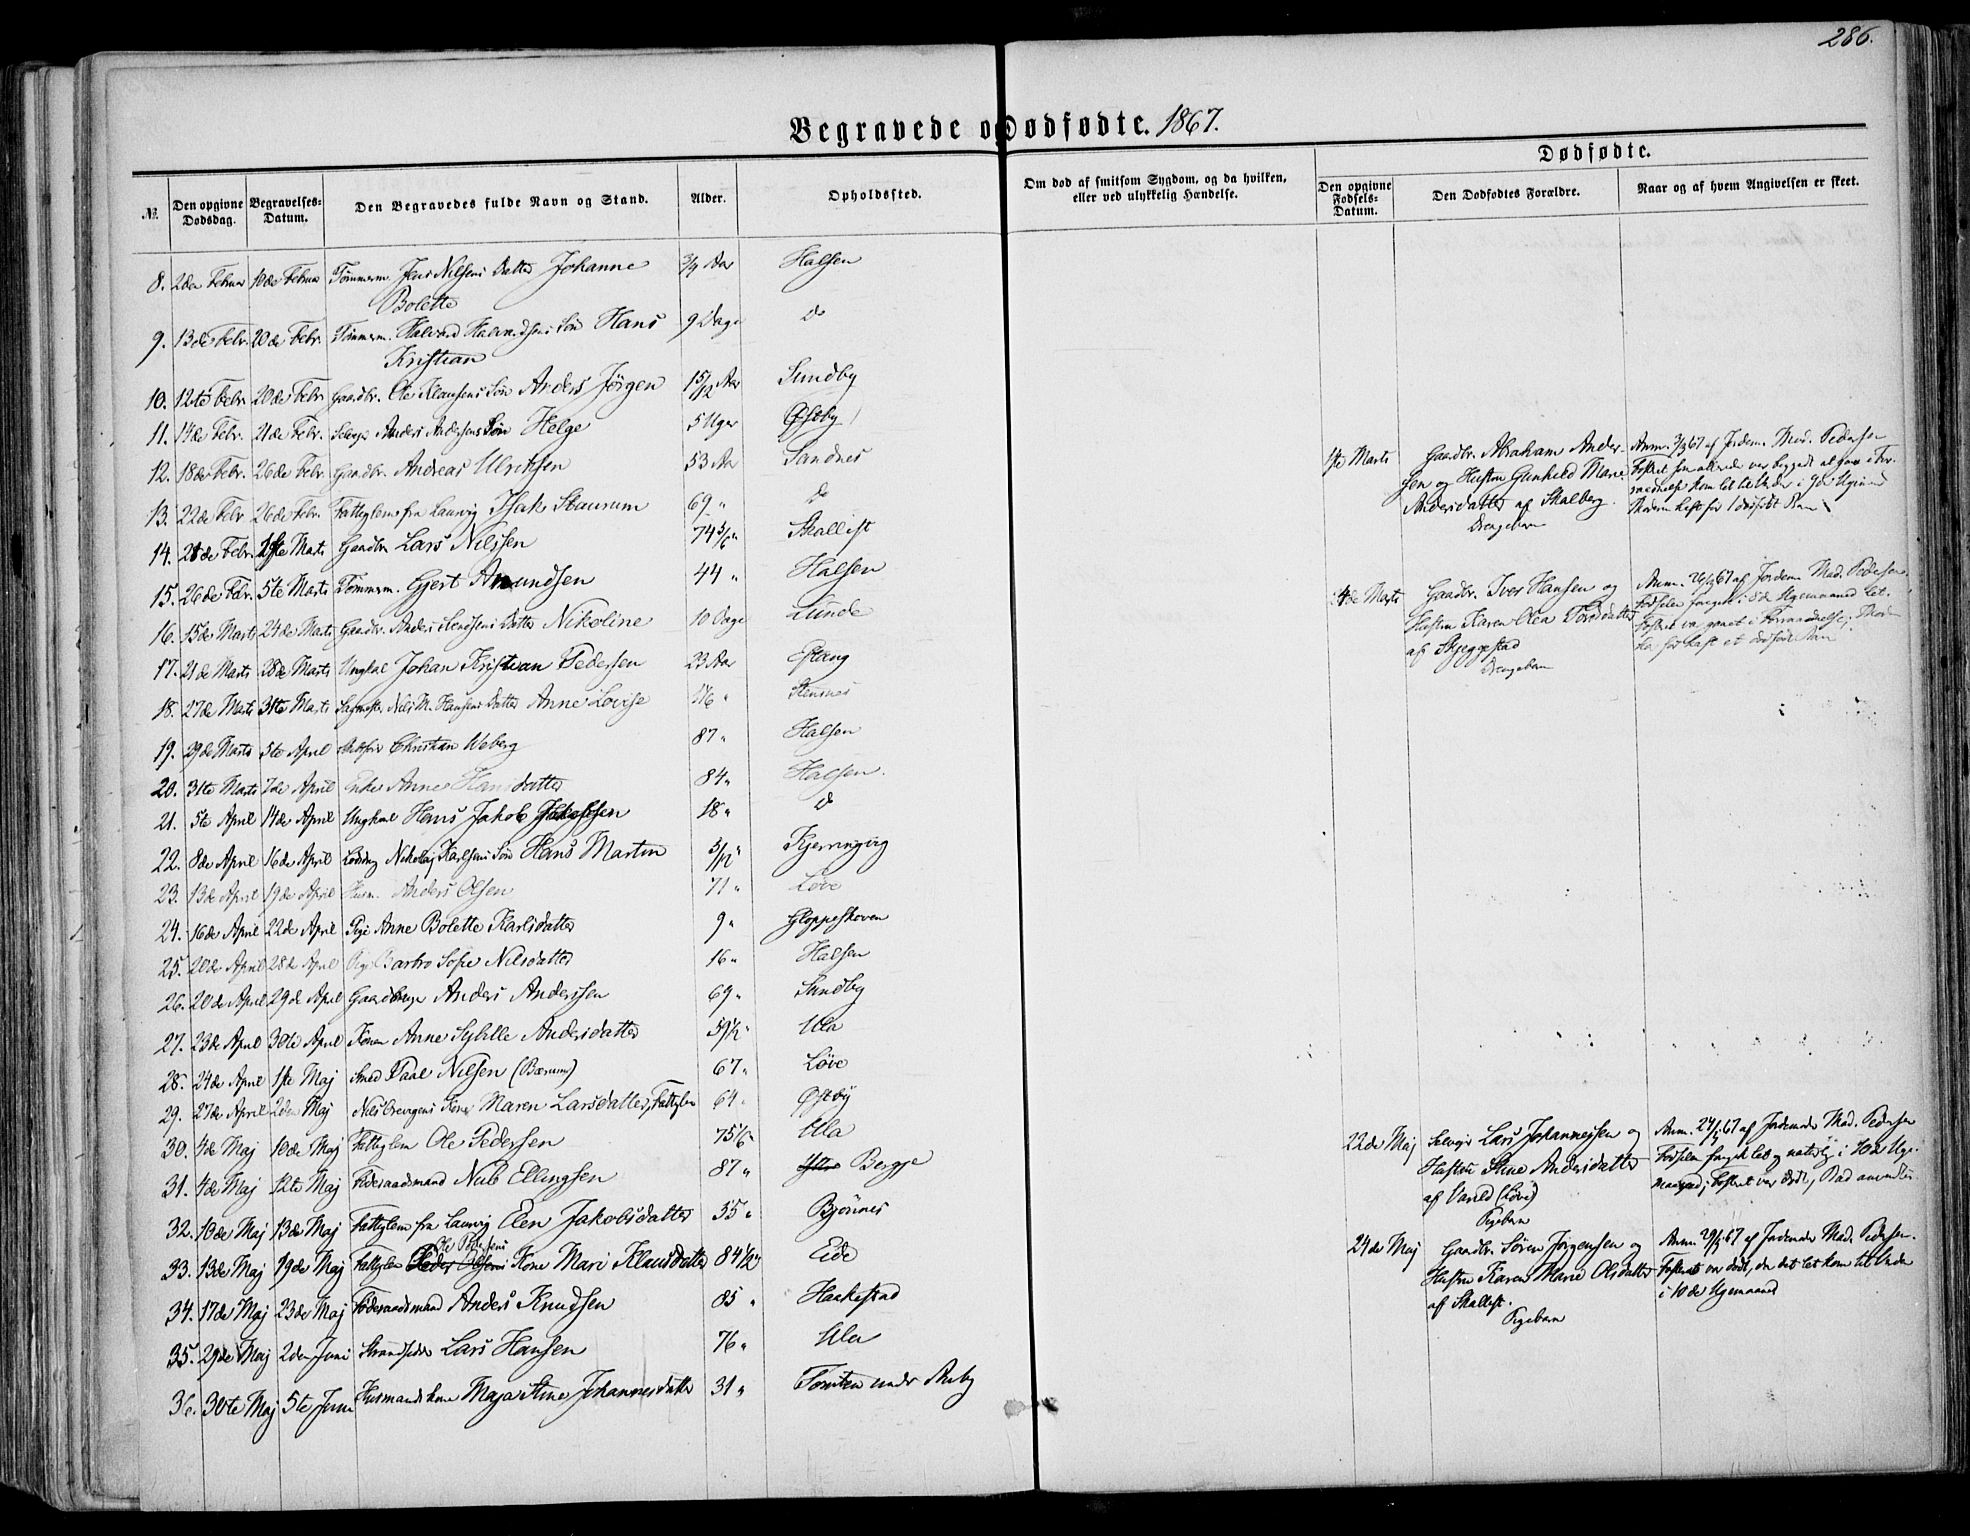 286.
Begravede og Dødfødte. 1867.
Dødfødte.
№. Den opgivne Dødsdag. Begravelses-Datum. Den Begravedes fulde Navn og Stand. Alder. Opholdssted. Om død af smitsom Sygdom, og da hvilken, eller ved ulykkelig Hændelse. Den opgivne Fødsels-Datum. Den Dødfødtes Forældre. Naar og af hvem Angivelsen er skeet.
8. 2den Februar 10de Februar Tømmerm. Jens Nilsens Datter Johanne 3/4 Aar Halsen
Bolette
9. 13de Febr. 20de Febr. Tømmerm. Halvord Halvordsens Søn Hans 9 Dage do
Kristian
10. 12te Febr. 20de Febr. Gaardbr. Ole Klausens Søn Anders Jörgen 1 5/12 Aar Sundby
11. 14de Febr. 21de Febr. Anders Andersens Søn Helge 5 Uger Østby
12. 18de Febr. 26de Febr. Gaardbr. Andreas Ulriksen 53 Aar Sandnes
13. 22de Febr. 26de Febr. Fattiglem fra Laurvig Isak Staurum 69 " do
14. 21de Febr. 1ste Marts Gaardbr. Lars Nilssen 74 5/6 " Skallist
15. 26de Febr. 5te Marts Tømmerm. Gjert Amundsen 44 " Halsen
16. 15de Marts 24de Marts Gaardbr. Anders Datter Nikoline 10 Dage Lunde
17. 21de Marts 28de Marts Ungkal Johan Kristian Pedersen 23 Aar Eftang
18. 27de Marts 31te Marts Nils M. Hansens Datter Anne Lovise Stensnes
19. 29de Marts 5te April Christian Weberg 87 " Halsen
20. 31te Marts 7de April Enke Anne Hansdatter 84 " Halsen.
21. 5te April 14de April Ungkarl Hans Jakob Jakobsen 18 " do
22. 8de April 16de April Nikolaj Karlsens Søn Hans Martin 5/12 " Kjerringvig
23. 13de April 19de April Husm. Anders Olsen 71 " Løve
24. 16de April 22de April Pige Anne Bolette Karlsdatter 9 " Gloppeskoven
25. 20de April 28de April Pige Sofie Nilsdatter 16 " Halsen
26. 20de April 29de April Gaardbruger Anders Anderssen 69 " Sundby
27. 23de April 30te April Konen Anne Sybille Andersdatter 59 1/2 " Ula
28. 24de April 1ste Maj Smed Paal Nilsen (Bærum) 67 " Løve
29. 27de April 2den Maj Nils Kone Maren Larsdatter, Fattiglem 64 " Østby
30. 4de Maj 10de Maj Fattiglem Ole Pedersen 75 1/6 " Ula
31. 4de Maj 12te Maj Føderaadsmand Nub Ellingsen 87 " Bergje
32. 10de Maj 13de Maj Fattiglem fra Laurvig Elen Jakobsdatter 35 " Bjönnes
Ole Pedersens
33. 13de Maj 19de Maj Fattiglem Peder Olsens Kone Mari Klausdatter 84 1/2 " Eide
34. 17de Maj 23de Maj Føderaadsmand Anders Knudsen 85 " Haakestad
35. 29de Maj 2den Juni Strandsidder Lars Hansen 76 " Ula
36. 30te Maj 5te Juni Husmandskone Maja Stine Johannesdatter 31 " Tomten under Auby
1ste Marts Gaardbr. Abraham Ander-
sen og Hustru Gunhild Marie
Andersdatter af Skalberg.
Drengebarn
Anm. 3/3 67 af Jordem. Mad. Pedersen
Fosteret som allerede var begyndt at gaa i For-
4de Marts Gaardbr. Iver Hansen og
Hustru Karen Olea
af Skjeggestad
Drengebarn
af Jordem. Mad. Pedersen.
22de Maj Lars Johannessen og
Hustru Stine Andersdatter
af Varild (Løve)
Pigebarn
Anm. 24/5 67 af Jordemoder Mad. Pedersen
Fødselen foregik let og naturlig i 10de Uge-
maaned; Fosteret var dødt, Bad anvendtes
24de Maj Gaardbr. Søren Jörgensen og
Hustru Karen Marie Olsdatter
af Skallist.
Pigebarn
Anm. 29/5 67 af Jordemoder Mad. Pedersen.
Fosteret var dødt, da det let kom til Verden
i 10de Ugemaaned